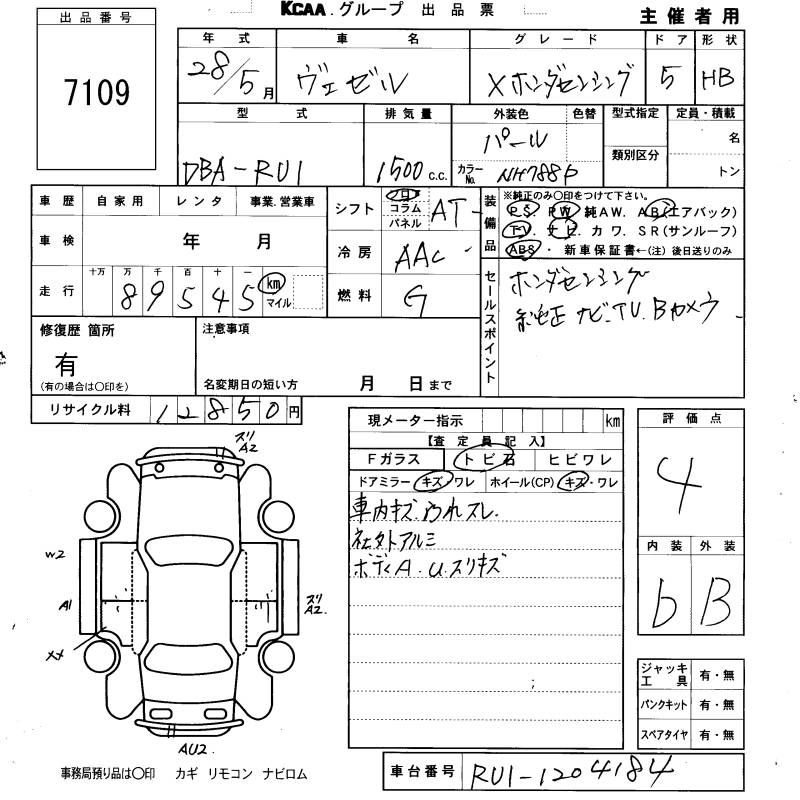 KCAA.グループ 出品票
主催者用
出品番号
7109
年式 車名 グレード ドア 形状
28/5月 ヴェゼル Xホンダセンシング 5 HB
型式 排気量 外装色 色替 型式指定 定員・積載
DBA-RU1 1500c.c. パール 名
類別区分
カラーNo. NH788P トン
車歴 自家用 レンタ 事業.営業車
シフト フロア コラム パネル AT
装備品
※純正のみ○印をつけて下さい。
PS PW 純AW. AB(エアバック)
TV. ナビ カワ. SR(サンルーフ)
ABS・ 新車保証書←(注)後日送りのみ
車検 年 月
冷房 AAC
走行 十万 万 千 百 十 一
89545 km マイル
燃料 G
セールスポイント
ホンダセンシング
純正 ナビ.TV.Bカメラ
修復歴 箇所
有
(有の場合は○印を)
注意事項
名変期日の短い方 月 日まで
リサイクル料 12850円
現メーター指示 km
【査定員記入】
Fガラス トビ石 ヒビワレ
ドアミラー キズ・ワレ ホイール(CP) キズ・ワレ
車内キズ.汚れスレ.
社外アルミ
ボディA.U.スリキズ
評価点
4
内装 外装
b B
ズリ
A2
W2
A1
XX
ズリ
A2.
AU2.
ジャッキ工具 有・無
パンクキット 有・無
スペアタイヤ 有・無
事務局預り品は○印 カギ リモコン ナビロム
車台番号 RU1-1204184